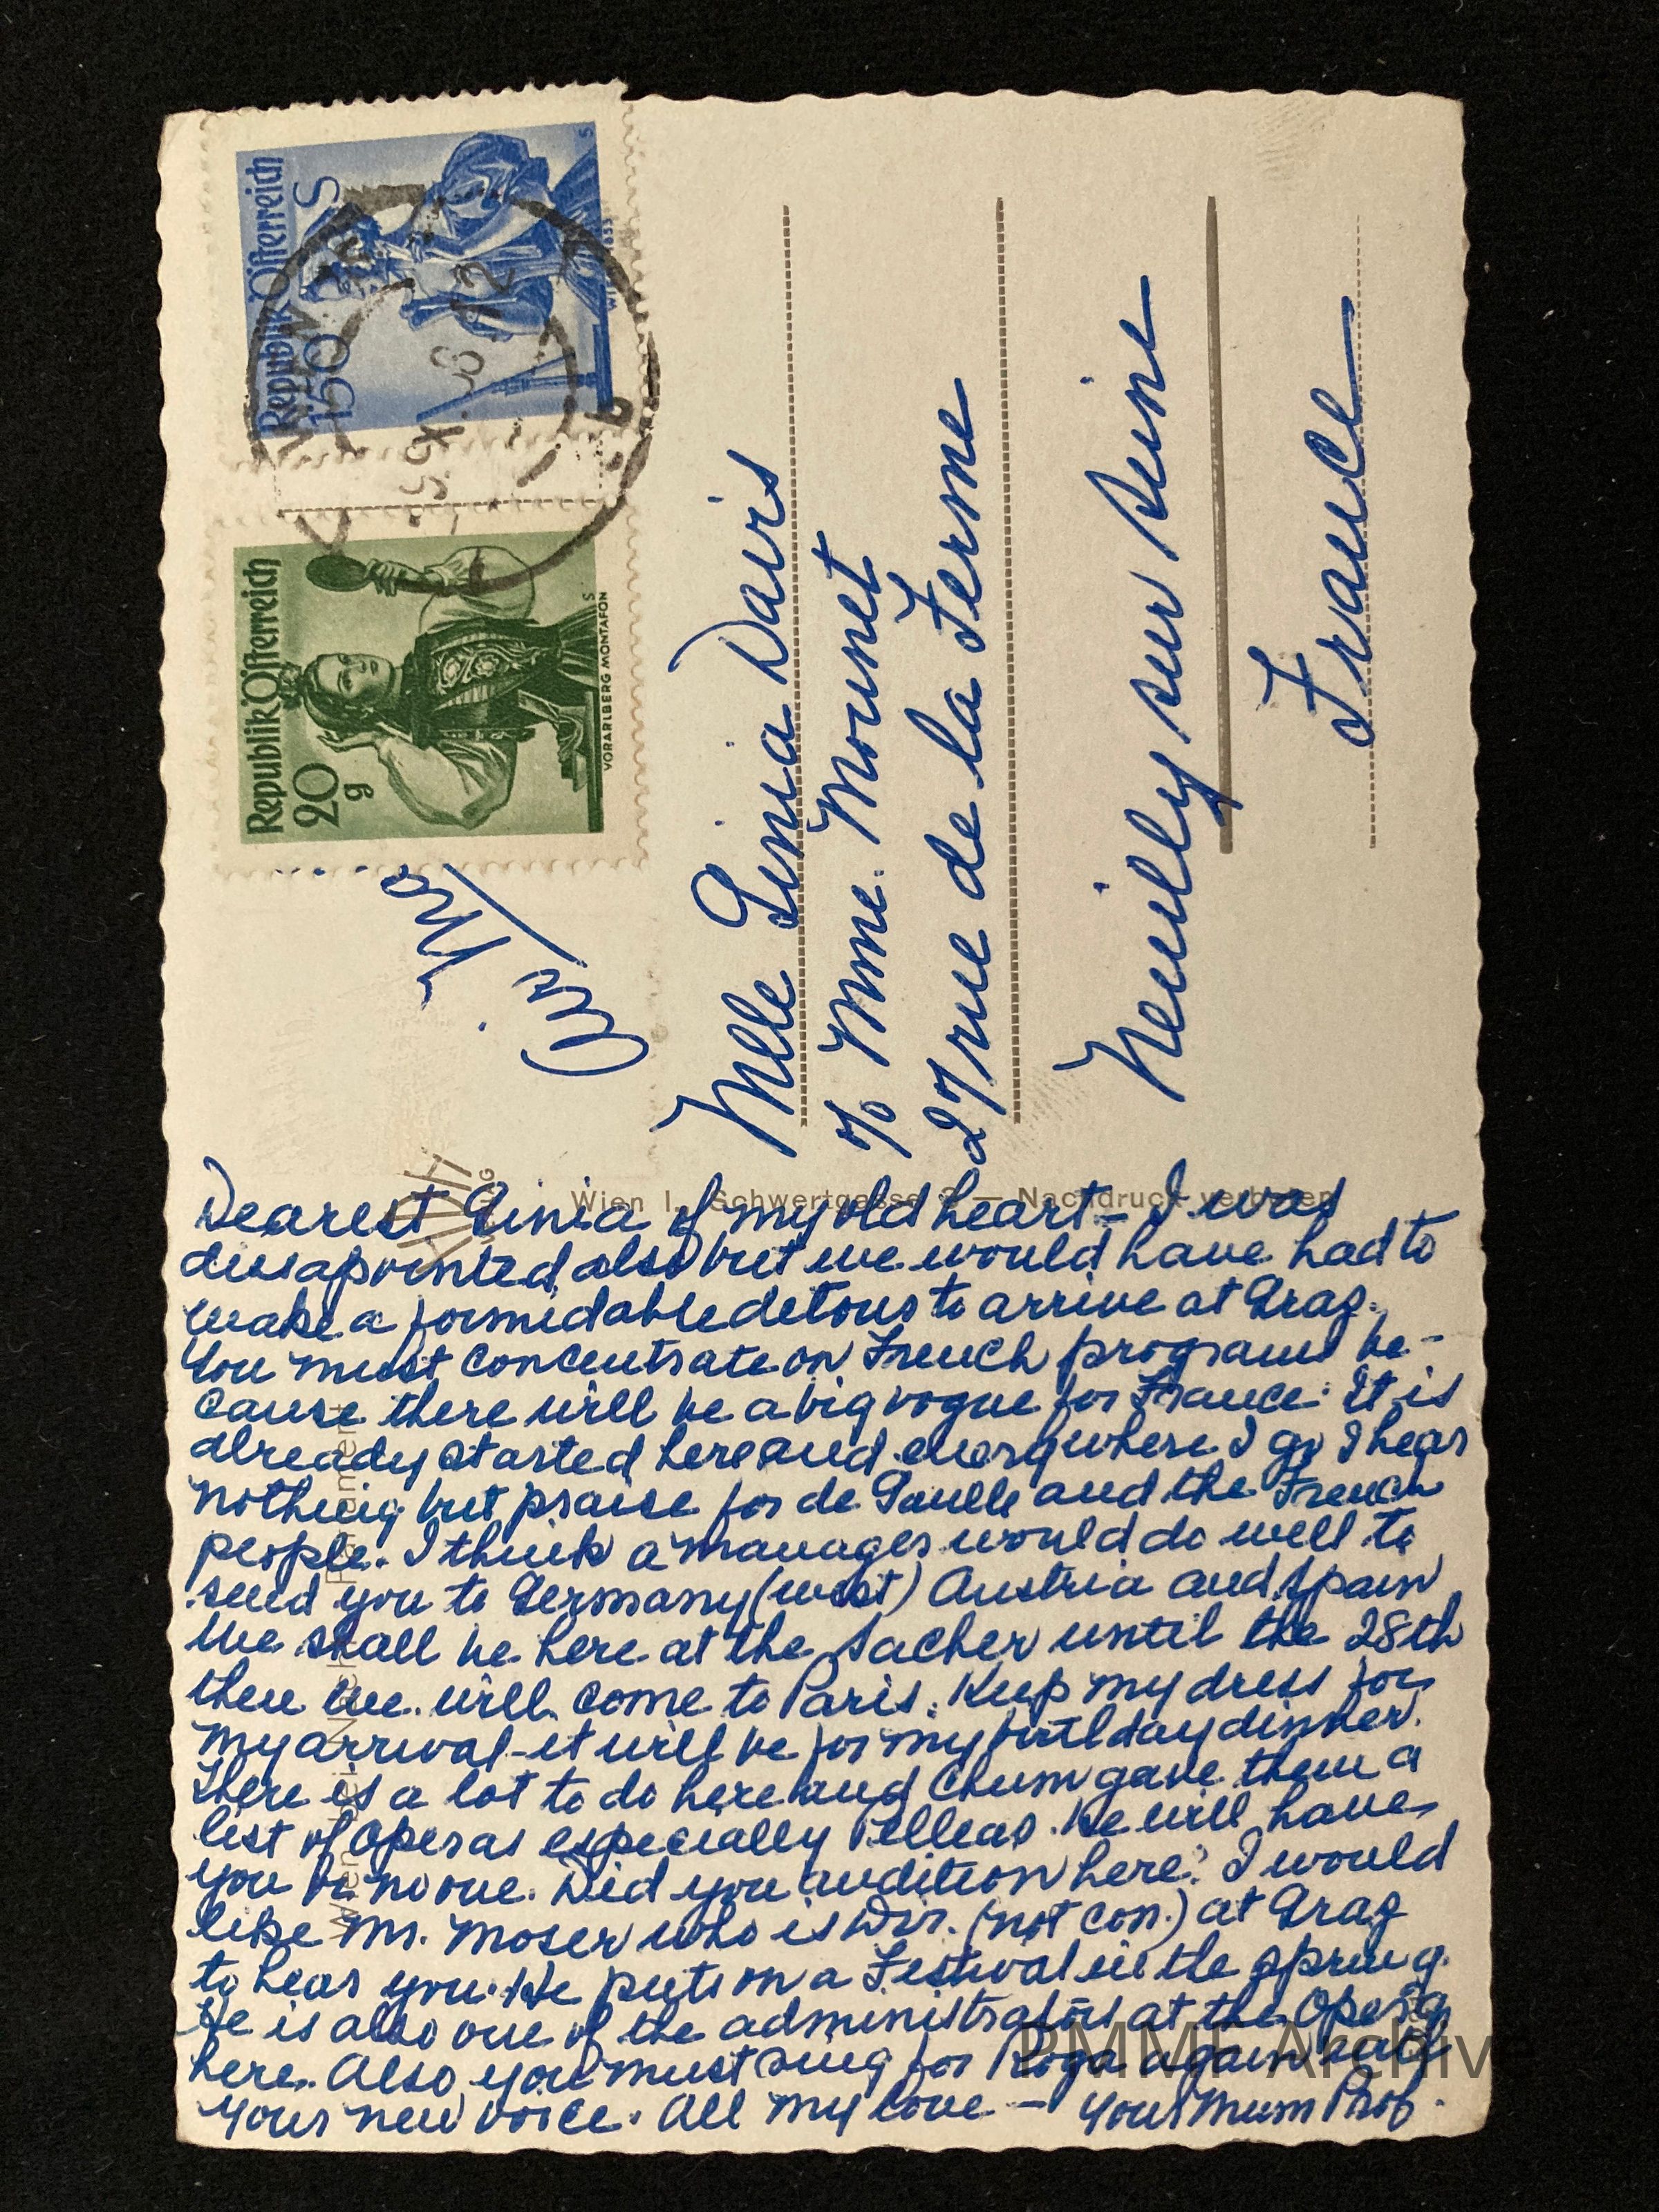 Republik Österreich
150 S
Republik Österreich
20 g
VORARLBERG MONTAFON
Air Mail
Mlle Ginia Davis
c/o Mme. Mounet
27 rue de la Ferme
Neuilly sur Seine
France
Wien I., Schwertgasse — Nachdruck verboten
Dearest Ginia of my old heart – I was
dissapointed also but we would have had to
make a formidable detour to arrive at Graz.
You must concentrate on French programs be-
cause there will be a big vogue for France. It is
already started here and everywhere I go I hear
nothing but praise for de Gaulle and the French
people. I think a manager would do well to
send you to Germany (west) Austria and Spain
We shall be here at the Sacher until the 28th
then we will come to Paris. Keep my dress for
my arrival - it will be for my birthday dinner.
There is a lot to do here and Chum gave them a
list of operas especially Pelleas. He will have
you or no one. Did you audition here? I would
like Mr. Moser who is Dir. (not con.) at Graz
to hear you. He puts on a Festival in the spring.
He is also one of the administrators at the Opera
here. Also you must sing for Roga again
your new voice. All my love – Your Mum Prof.
PMML Archive